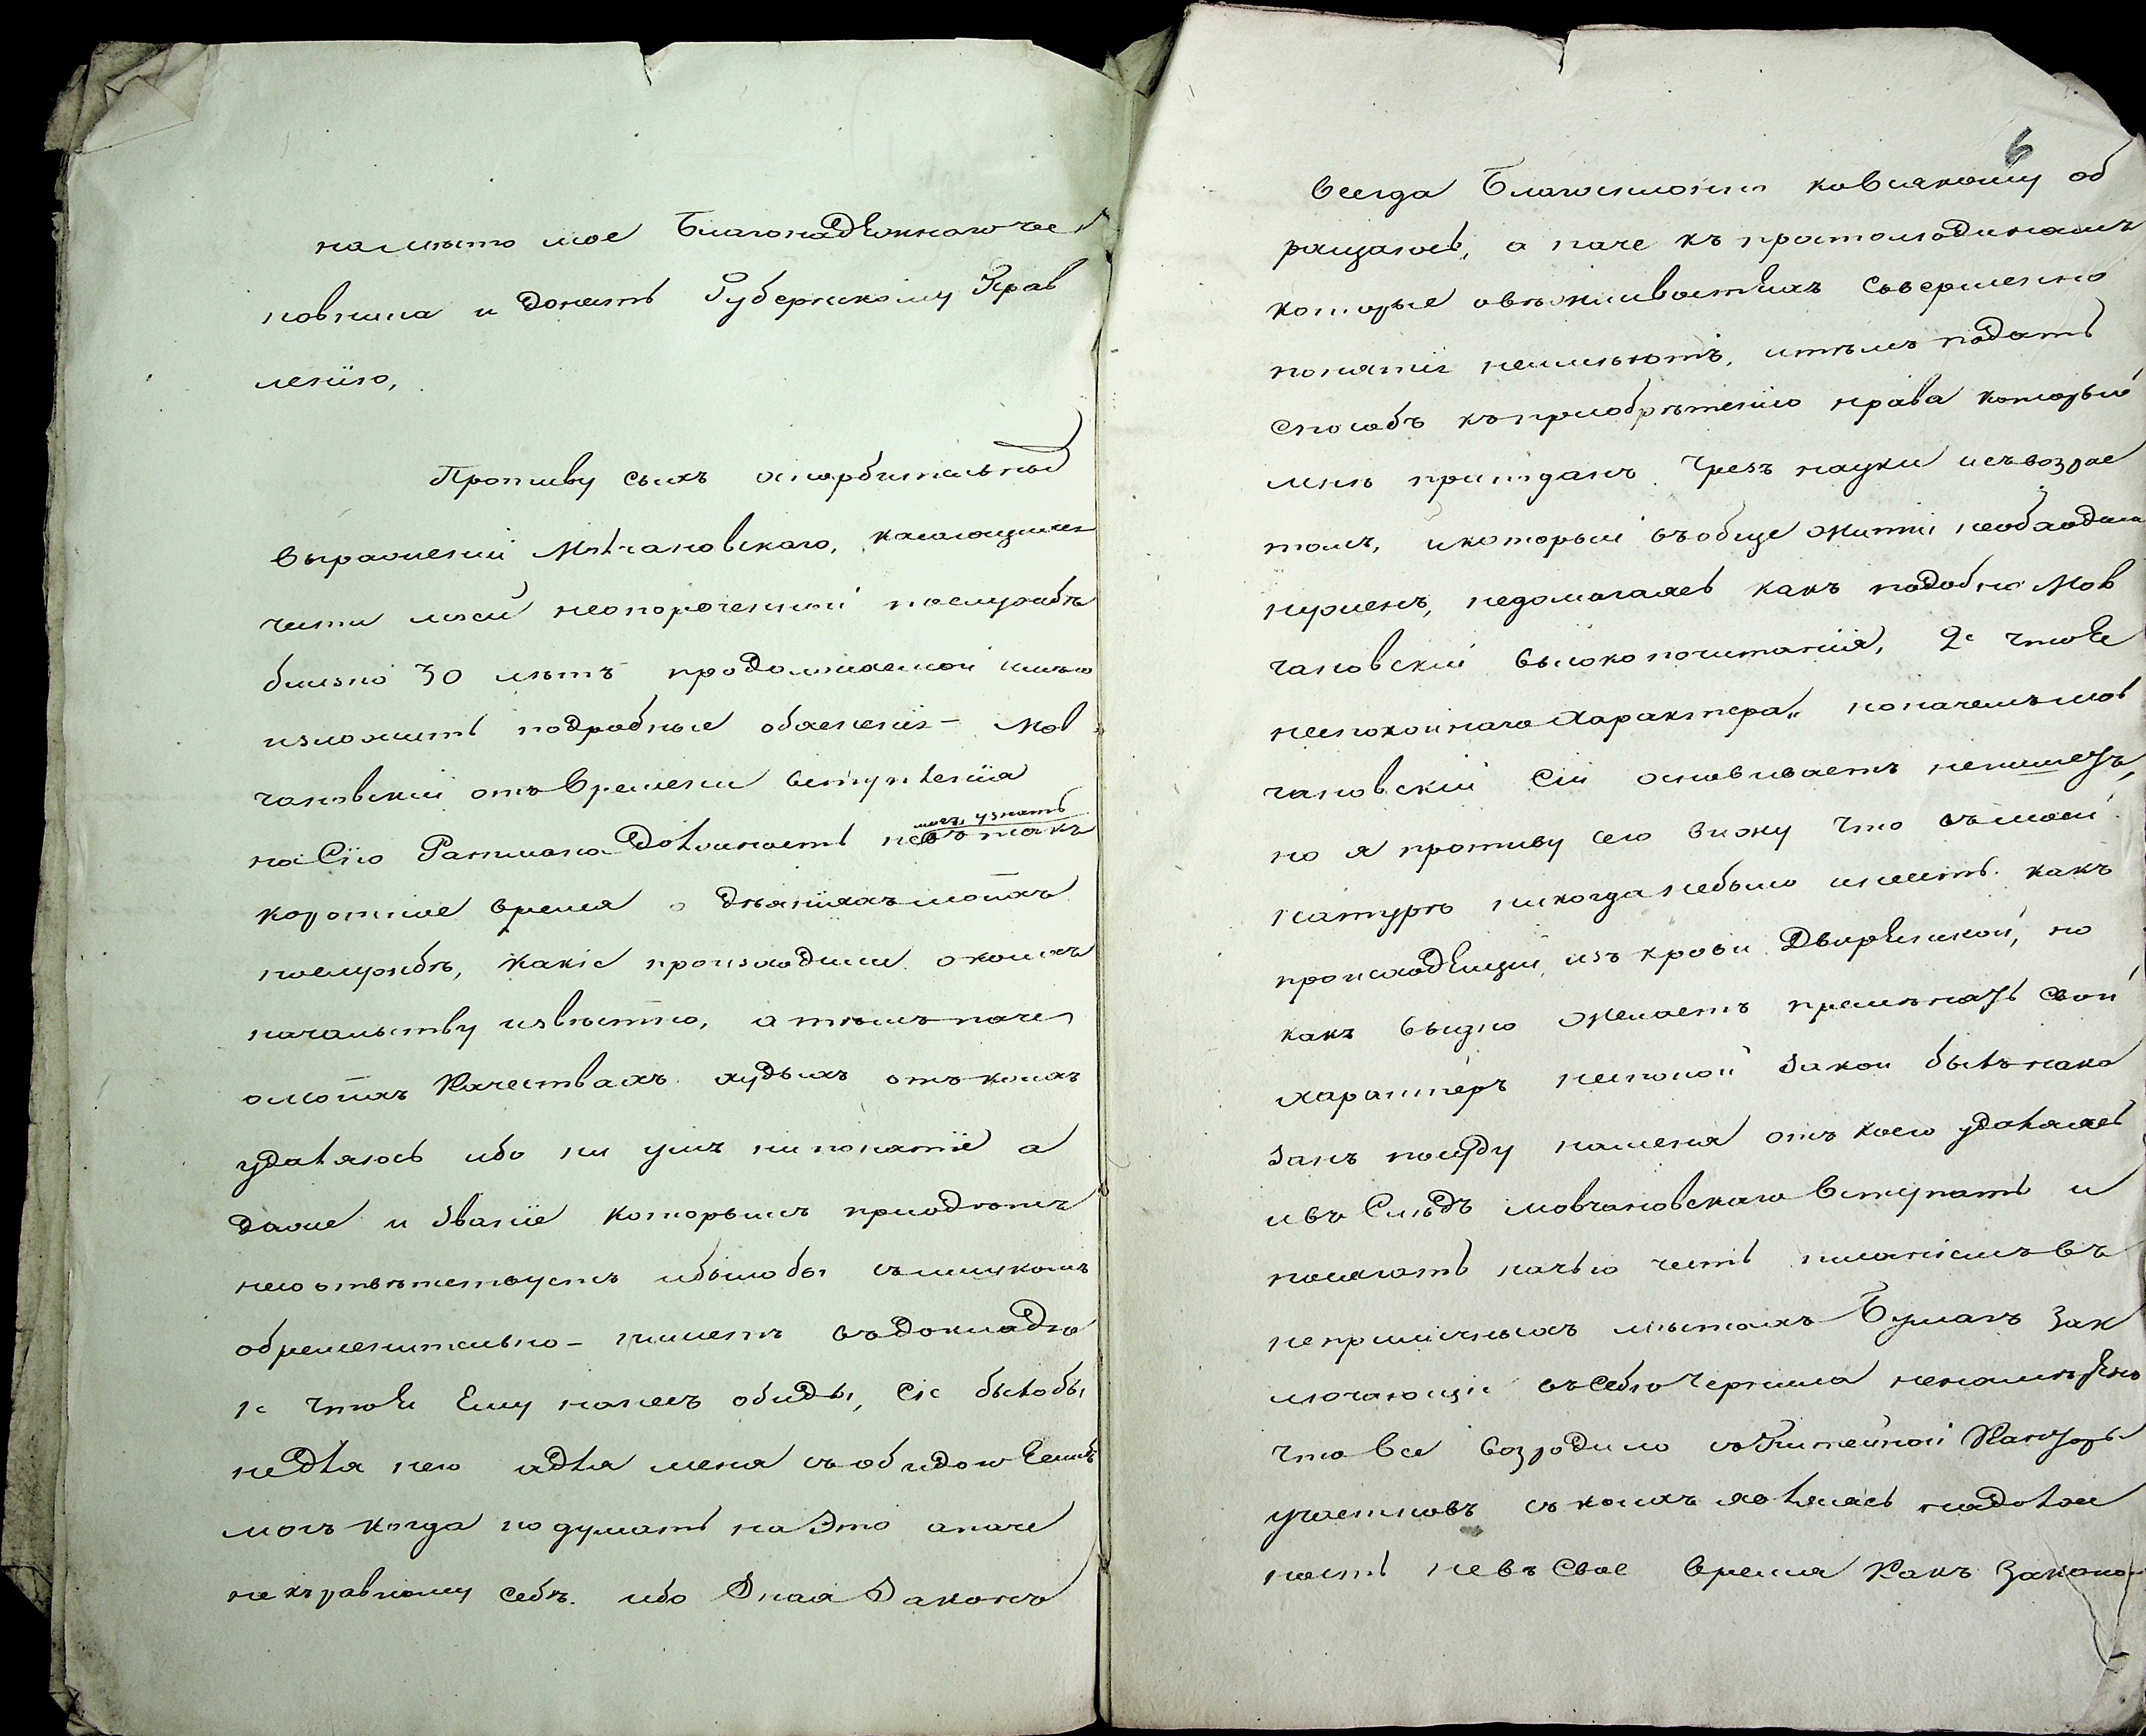 на место мое Благонадежного чи
новника и донесть Губернскому Прав
лению,
Противу сихъ оскорбительныхъ
выражений Мовчановскаго, касающихся
чести моей неопороченной послужбѣ
близко 30 лѣтъ продолжаемой имѣю
изложить подробные обясненія – Мов
чановский отъ времени вступленія
на Сію Ратмана должность не могъ узнать въ такъ
короткое время о дѣяніяхъ моихъ
послужбѣ, какіе происходили о коихъ
начальству извѣстно, а тѣмъ паче
о моихъ Качествахъ худыхъ отъ коихъ
удаляюсь ибо ни умъ ни понятіе а
даже и званіе которымъ приоднютъ
несоотвѣтствуетъ ибыло бы съ лишкомъ
обременительно – пишетъ въ докладѣ
1е чтобы Ему нанесъ обиды, Сіе было бы
не для него а для меня съ обидою Если бъ
могъ когда подумать на Это а паче
не къ равному себѣ. ибо Зная Законъ
6
всегда Благосклонно ко всякому об
ращаюсь, а паче къ простолюдинамъ
которые о вѣжливостяхъ совершенно
понятія неимѣютъ, и тѣмъ подать
способъ къ приобрѣтенію нрава который
мнѣ приданъ чрезъ науки и съ возрас
томъ, и который въ обще житіи необходимо
нуженъ, недомогаясь какъ подобно Мов
чановскій высокопочитанія, 2е что Я
неспокойнаго Характера„ по начемъ Мов
чановскій Сіи основываетъ непишетъ,
но я противу сего вижу что въ моей
натурѣ никогда небыло и несть какъ
происходящий изъ крови Дворянской, но
какъ видно желаетъ применять свой
характеръ неспокой Закои быть нака
занъ посуду на меня отъ коего удаляясь
и въ Слѣдъ Мовчановскаго вступать и
посягать на чью честь писаніемъ въ
неприличныхъ мѣстахъ Бумагъ Зак
лючающія въ себѣ чернила не намѣренъ
что все возродило въ Питейной Канторы
участковъ съ коихъ являясь на должн
ность не въ Свое время Какъ Законо